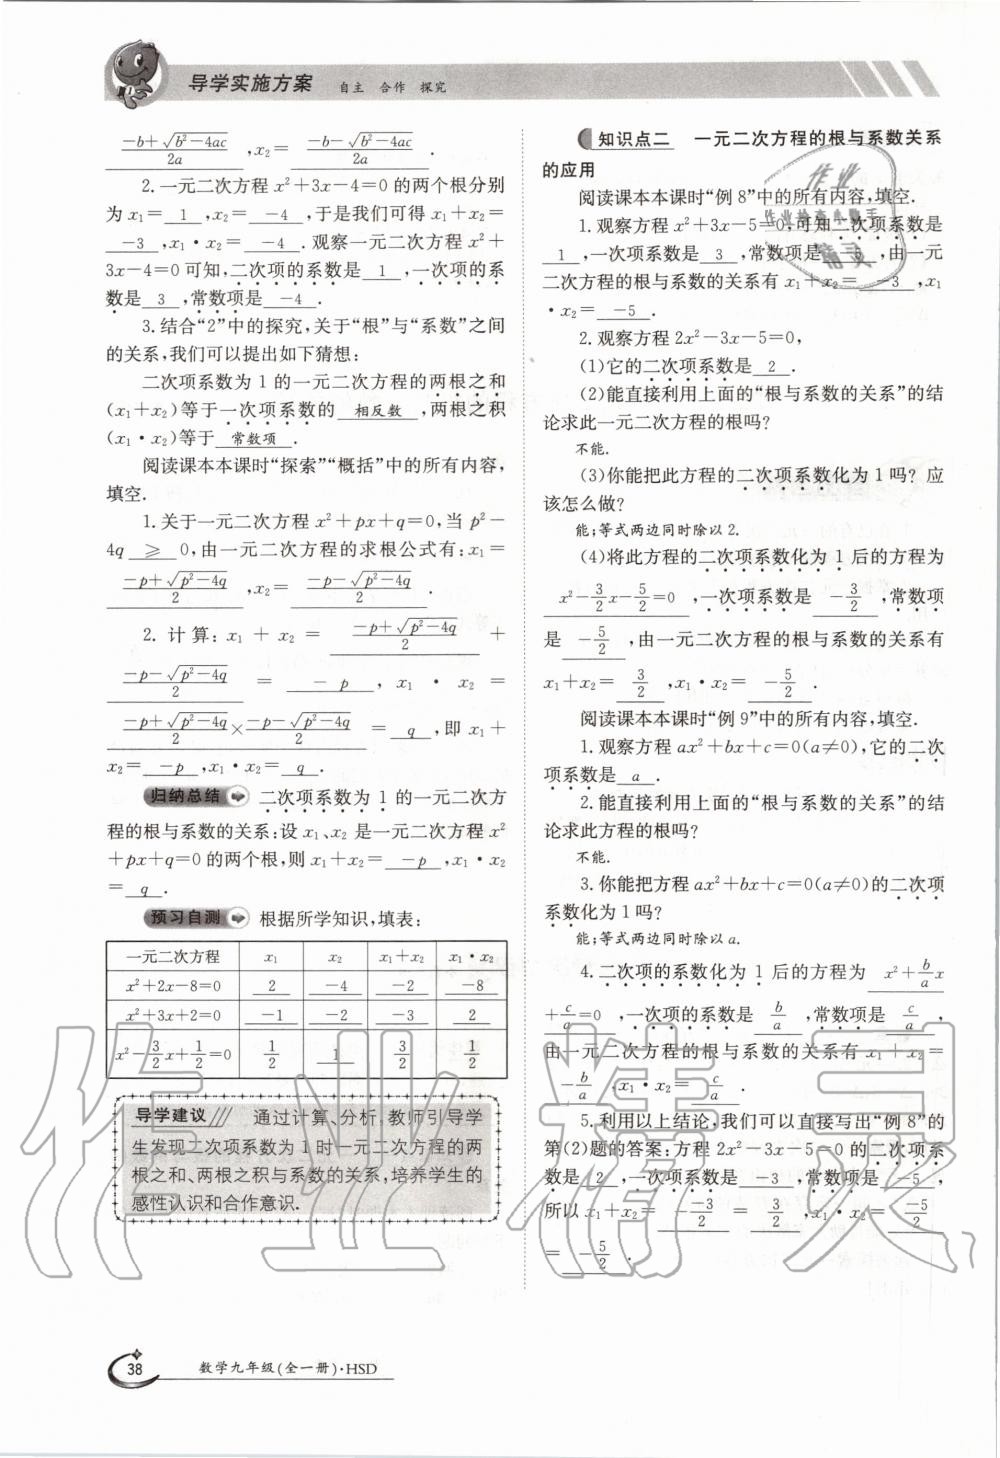 导学实施方案 自主 合作 探究
$\frac{-b+\sqrt{b^2-4ac}}{2a}$ ,x₂= $\frac{-b-\sqrt{b^2-4ac}}{2a}$ .
2.一元二次方程 x²+3x-4=0 的两个根分别
为 x₁= 1 ,x₂= -4 ,于是我们可得 x₁+x₂=
-3 ,x₁·x₂= -4 .观察一元二次方程 x²+
3x-4=0 可知,二次项的系数是 1 ,一次项的系
数是 3 ,常数项是 -4 .
3.结合“2”中的探究,关于“根”与“系数”之间
的关系,我们可以提出如下猜想:
二次项系数为 1 的一元二次方程的两根之和
(x₁+x₂)等于一次项系数的 相反数 ,两根之积
(x₁·x₂)等于 常数项 .
阅读课本本课时“探索”“概括”中的所有内容,
填空.
1.关于一元二次方程 x²+px+q=0,当 p²-
4q ≥ 0,由一元二次方程的求根公式有:x₁=
$\frac{-p+\sqrt{p^2-4q}}{2}$ ,x₂= $\frac{-p-\sqrt{p^2-4q}}{2}$ .
2. 计算: x₁ + x₂ = $\frac{-p+\sqrt{p^2-4q}}{2}$ +
$\frac{-p-\sqrt{p^2-4q}}{2}$ = -p , x₁ · x₂ =
$\frac{-p+\sqrt{p^2-4q}}{2}$×$\frac{-p-\sqrt{p^2-4q}}{2}$ = q ,即 x₁+
x₂= -p ,x₁·x₂= q .
归纳总结 二次项系数为 1 的一元二次方
程的根与系数的关系:设 x₁、x₂ 是一元二次方程 x²
+px+q=0 的两个根,则 x₁+x₂= -p ,x₁·x₂
= q .
预习自测 根据所学知识,填表:
一元二次方程 x₁ x₂ x₁+x₂ x₁·x₂
x²+2x-8=0 2 -4 -2 -8
x²+3x+2=0 -1 -2 -3 2
x²-$\frac{3}{2}$x+$\frac{1}{2}$=0 $\frac{1}{2}$ 1 $\frac{3}{2}$ $\frac{1}{2}$
导学建议 通过计算、分析,教师引导学
生发现二次项系数为 1 时一元二次方程的两
根之和、两根之积与系数的关系,培养学生的
感性认识和合作意识.
知识点二 一元二次方程的根与系数关系
的应用
阅读课本本课时“例 8”中的所有内容,填空.
1.观察方程 x²+3x-5=0,可知二次项系数是
1 ,一次项系数是 3 ,常数项是 -5 ,由一元
二次方程的根与系数的关系有 x₁+x₂= -3 ,x₁
·x₂= -5 .
2.观察方程 2x²-3x-5=0,
(1)它的二次项系数是 2 .
(2)能直接利用上面的“根与系数的关系”的结
论求此一元二次方程的根吗?
不能.
(3)你能把此方程的二次项系数化为 1 吗? 应
该怎么做?
能;等式两边同时除以 2.
(4)将此方程的二次项系数化为 1 后的方程为
x²-$\frac{3}{2}$x-$\frac{5}{2}$=0 ,一次项系数是 -$\frac{3}{2}$ ,常数项
是 -$\frac{5}{2}$ ,由一元二次方程的根与系数的关系有
x₁+x₂= $\frac{3}{2}$ ,x₁·x₂= -$\frac{5}{2}$ .
阅读课本本课时“例 9”中的所有内容,填空.
1.观察方程 ax²+bx+c=0(a≠0),它的二次
项系数是 a .
2.能直接利用上面的“根与系数的关系”的结
论求此方程的根吗?
不能.
3.你能把方程 ax²+bx+c=0(a≠0)的二次项
系数化为 1 吗?
能;等式两边同时除以 a.
4.二次项的系数化为 1 后的方程为 x²+$\frac{b}{a}$x
+$\frac{c}{a}$=0 ,一次项的系数是 $\frac{b}{a}$ ,常数项是 $\frac{c}{a}$ ,
由一元二次方程的根与系数的关系有 x₁+x₂=
-$\frac{b}{a}$ ,x₁·x₂= $\frac{c}{a}$ .
5.利用以上结论,我们可以直接写出“例 8”的
第(2)题的答案:方程 2x²-3x-5=0 的二次项系
数是 2 ,一次项系数是 -3 ,常数项是 -5 ,
所以 x₁+x₂= -$\frac{-3}{2}$ = $\frac{3}{2}$ ,x₁·x₂= $\frac{-5}{2}$
= -$\frac{5}{2}$ .
作业
作业检查小助手
精灵
作业精灵
38 数学九年级(全一册)·HSD